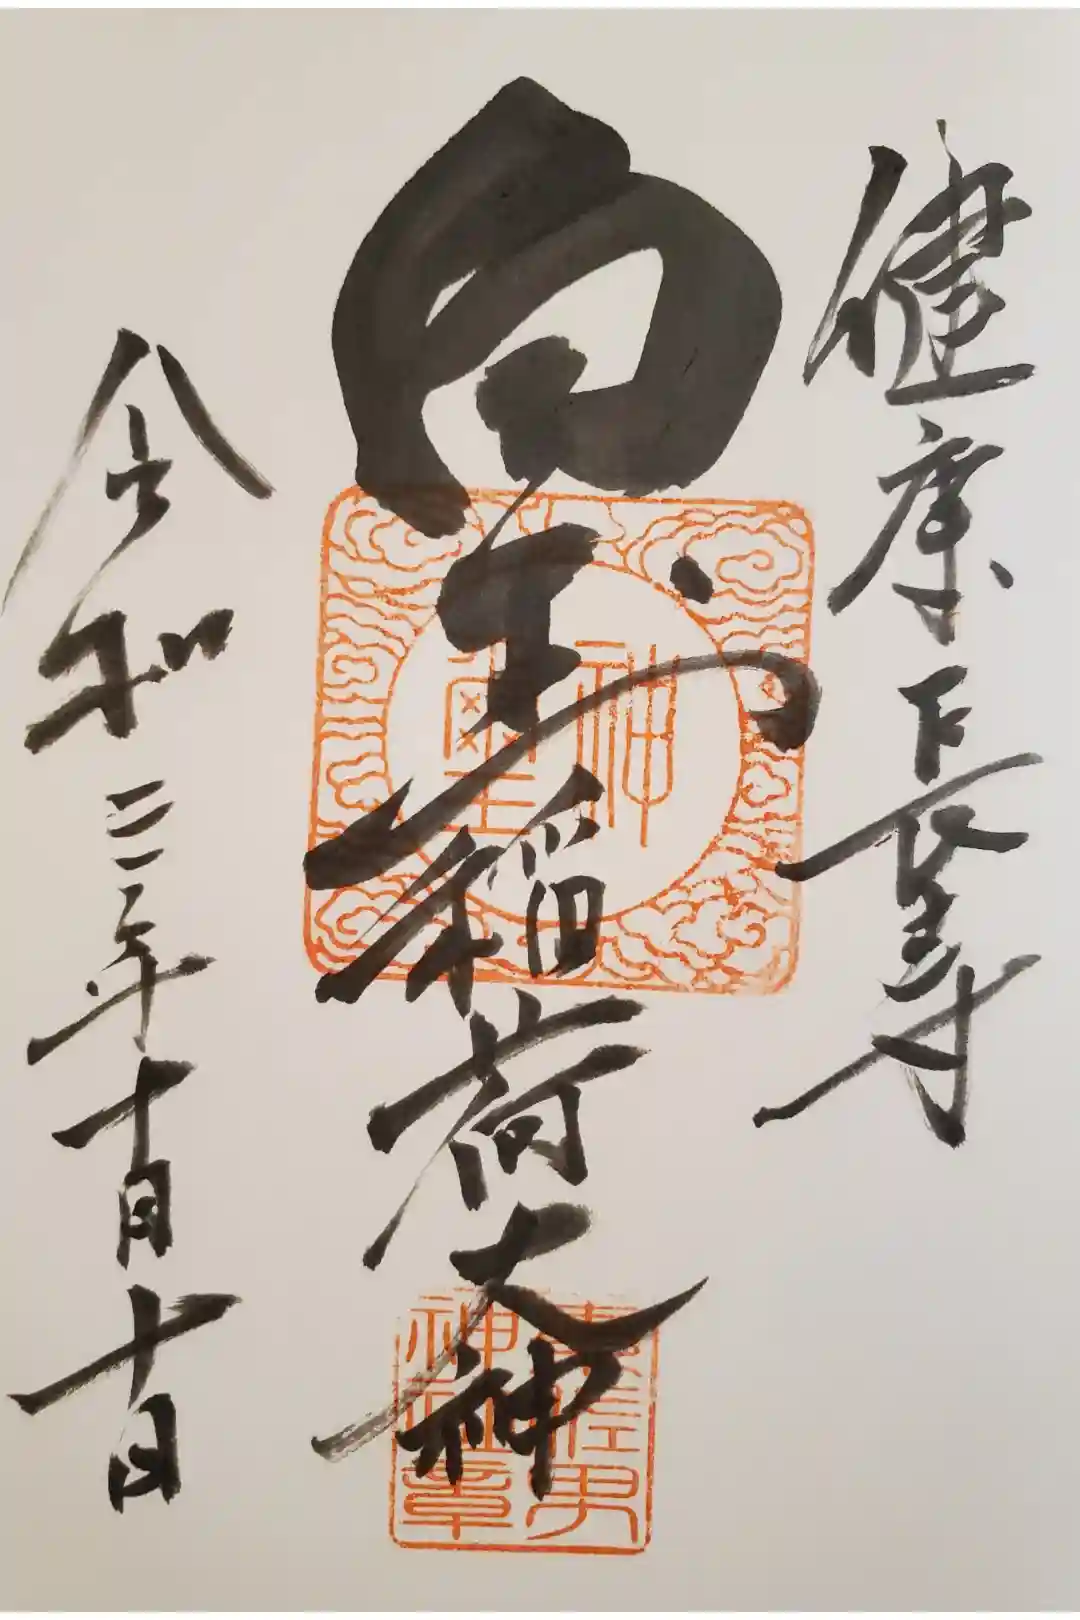 健康長寿
白玉稲荷大神
令和三年十月十日
神璽
神社章